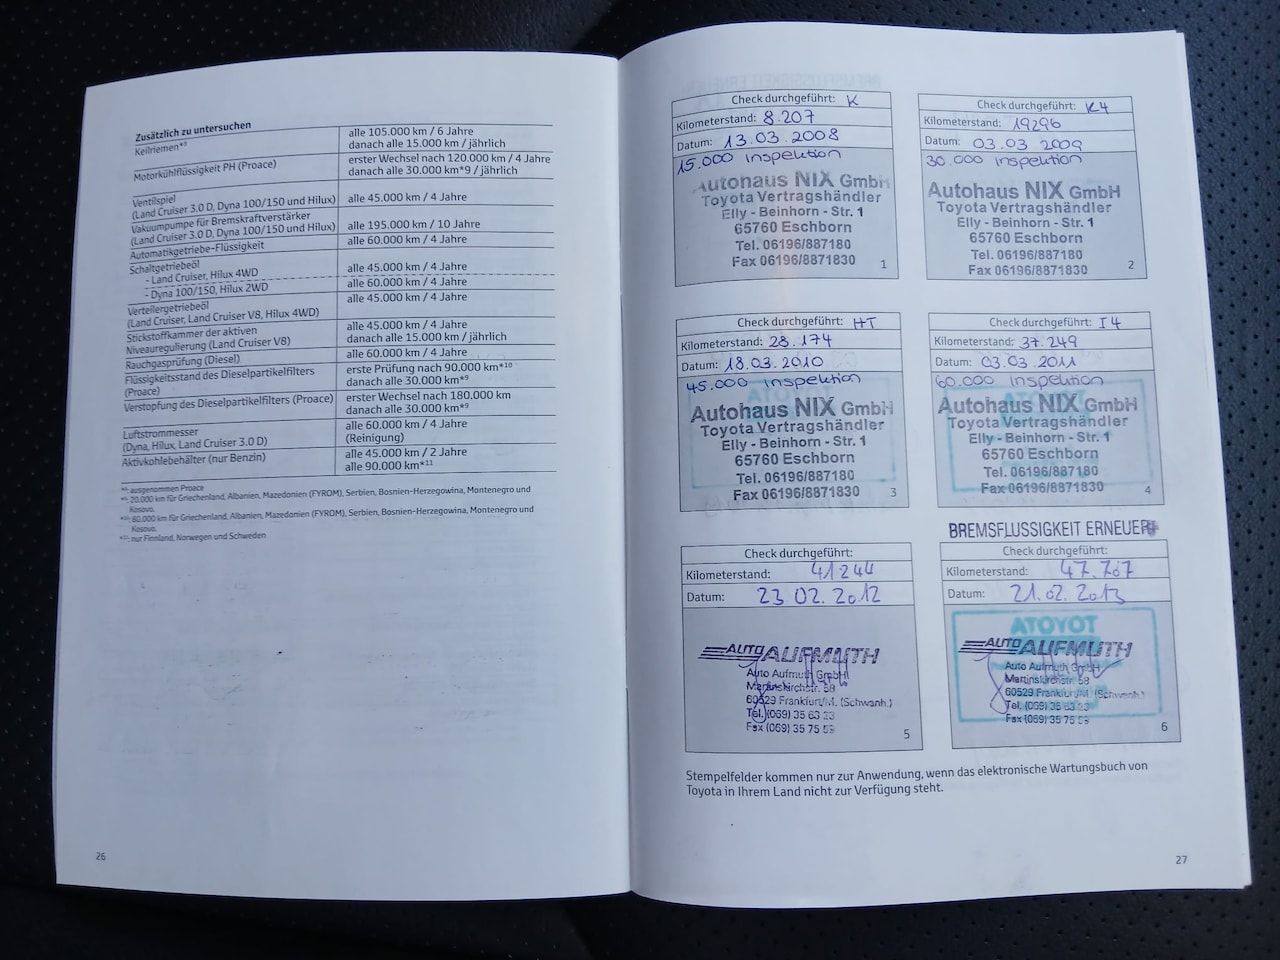 Zusätzlich zu untersuchen
Keilriemen*⁸ alle 105.000 km / 6 Jahre
danach alle 15.000 km / jährlich
Motorkühlflüssigkeit PH (Proace) erster Wechsel nach 120.000 km / 4 Jahre
danach alle 30.000 km*9 / jährlich
Ventilspiel
(Land Cruiser 3.0 D, Dyna 100/150 und Hilux) alle 45.000 km / 4 Jahre
Vakuumpumpe für Bremskraftverstärker
(Land Cruiser 3.0 D, Dyna 100/150 und Hilux) alle 195.000 km / 10 Jahre
Automatikgetriebe-Flüssigkeit alle 60.000 km / 4 Jahre
Schaltgetriebeöl
- Land Cruiser, Hilux 4WD alle 45.000 km / 4 Jahre
- Dyna 100/150, Hilux 2WD alle 60.000 km / 4 Jahre
Verteilergetriebeöl
(Land Cruiser, Land Cruiser V8, Hilux 4WD) alle 45.000 km / 4 Jahre
Stickstoffkammer der aktiven
Niveauregulierung (Land Cruiser V8) alle 45.000 km / 4 Jahre
danach alle 15.000 km / jährlich
Rauchgasprüfung (Diesel) alle 60.000 km / 4 Jahre
Flüssigkeitsstand des Dieselpartikelfilters
(Proace) erste Prüfung nach 90.000 km*¹⁰
danach alle 30.000 km*⁹
Verstopfung des Dieselpartikelfilters (Proace) erster Wechsel nach 180.000 km
danach alle 30.000 km*⁹
Luftstrommesser
(Dyna, Hilux, Land Cruiser 3.0 D) alle 60.000 km / 4 Jahre
(Reinigung)
Aktivkohlebehälter (nur Benzin) alle 45.000 km / 2 Jahre
alle 90.000 km*¹¹
ausgenommen Proace
20.000 km für Griechenland, Albanien, Mazedonien (FYROM), Serbien, Bosnien-Herzegowina, Montenegro und
Kosovo.
60.000 km für Griechenland, Albanien, Mazedonien (FYROM), Serbien, Bosnien-Herzegowina, Montenegro und
Kosovo.
nur Finnland, Norwegen und Schweden
26
Check durchgeführt: K
Kilometerstand: 8.207
Datum: 13.03.2008
15.000 Inspektion
Autohaus NIX GmbH
Toyota Vertragshändler
Elly - Beinhorn - Str. 1
65760 Eschborn
Tel. 06196/887180
Fax 06196/8871830
1
Check durchgeführt: K4
Kilometerstand: 19296
Datum: 03.03.2009
30.000 Inspektion
Autohaus NIX GmbH
Toyota Vertragshändler
Elly - Beinhorn - Str. 1
65760 Eschborn
Tel. 06196/887180
Fax 06196/8871830
2
Check durchgeführt: HT
Kilometerstand: 28.174
Datum: 18.03.2010
45.000 Inspektion
Autohaus NIX GmbH
Toyota Vertragshändler
Elly - Beinhorn - Str. 1
65760 Eschborn
Tel. 06196/887180
Fax 06196/8871830
3
Check durchgeführt: I4
Kilometerstand: 37.249
Datum: 03.03.2011
60.000 Inspektion
Autohaus NIX GmbH
Toyota Vertragshändler
Elly - Beinhorn - Str. 1
65760 Eschborn
Tel. 06196/887180
Fax 06196/8871830
4
Check durchgeführt:
Kilometerstand: 41244
Datum: 23 02. 2012
AUTO AUFMUTH
Auto Aufmuth GmbH
Martinskirchstr. 58
60529 Frankfurt/M. (Schwanh.)
Tel. (069) 35 63 23
Fax (069) 35 75 59
5
BREMSFLÜSSIGKEIT ERNEUERT
Check durchgeführt:
Kilometerstand: 47.767
Datum: 21.02.2013
AUTO AUFMUTH
Auto Aufmuth GmbH
Martinskirchstr. 58
60529 Frankfurt/M. (Schwanh.)
Tel. (069) 35 63 23
Fax (069) 35 75 59
6
Stempelfelder kommen nur zur Anwendung, wenn das elektronische Wartungsbuch von
Toyota in Ihrem Land nicht zur Verfügung steht.
27